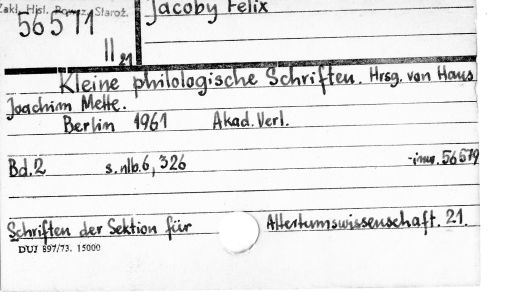 Zakł. Hist. Powsz. Staroż.
56571
Jacoby Felix
II 21
Kleine philologische Schriften. Hrsg. von Hans
Joachim Mette.
Berlin 1961 Akad. Verl.
Bd. 2 s. nlb. 6, 326 -inw. 56579
Schriften der Sektion für Altertumswissenschaft. 21.
DUJ 897/73. 15000